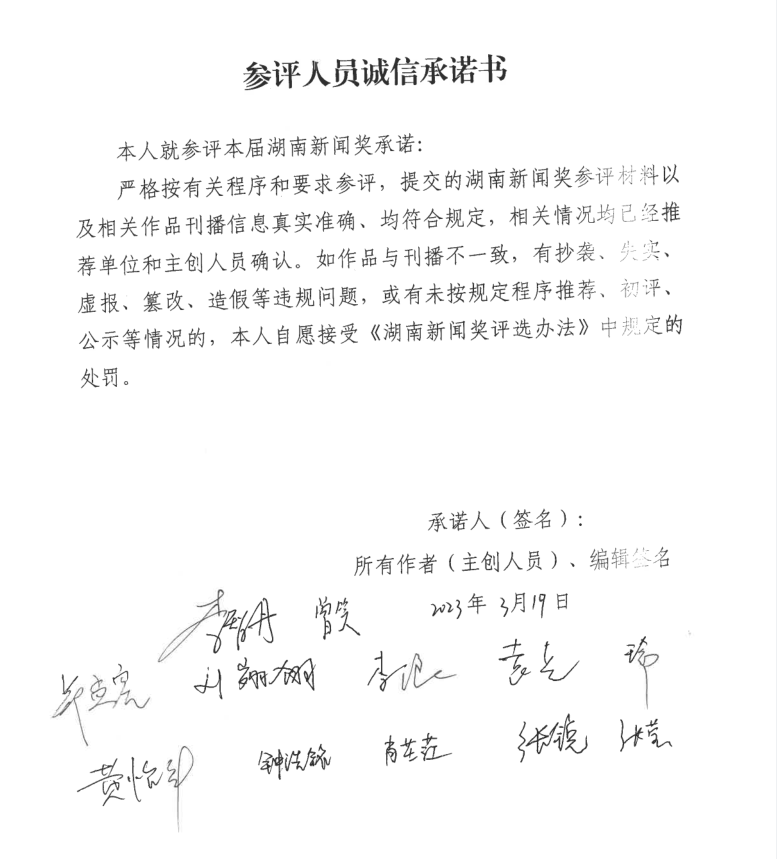 参评人员诚信承诺书
本人就参评本届湖南新闻奖承诺：
严格按有关程序和要求参评，提交的湖南新闻奖参评材料以
及相关作品刊播信息真实准确、均符合规定，相关情况均已经推
荐单位和主创人员确认。如作品与刊播不一致，有抄袭、失实、
虚报、篡改、造假等违规问题，或有未按规定程序推荐、初评、
公示等情况的，本人自愿接受《湖南新闻奖评选办法》中规定的
处罚。
承诺人（签名）：
所有作者（主创人员）、编辑签名
2023年3月19日
曾笑
袁光
钟浩铭
肖芷茳
张镜 张莹